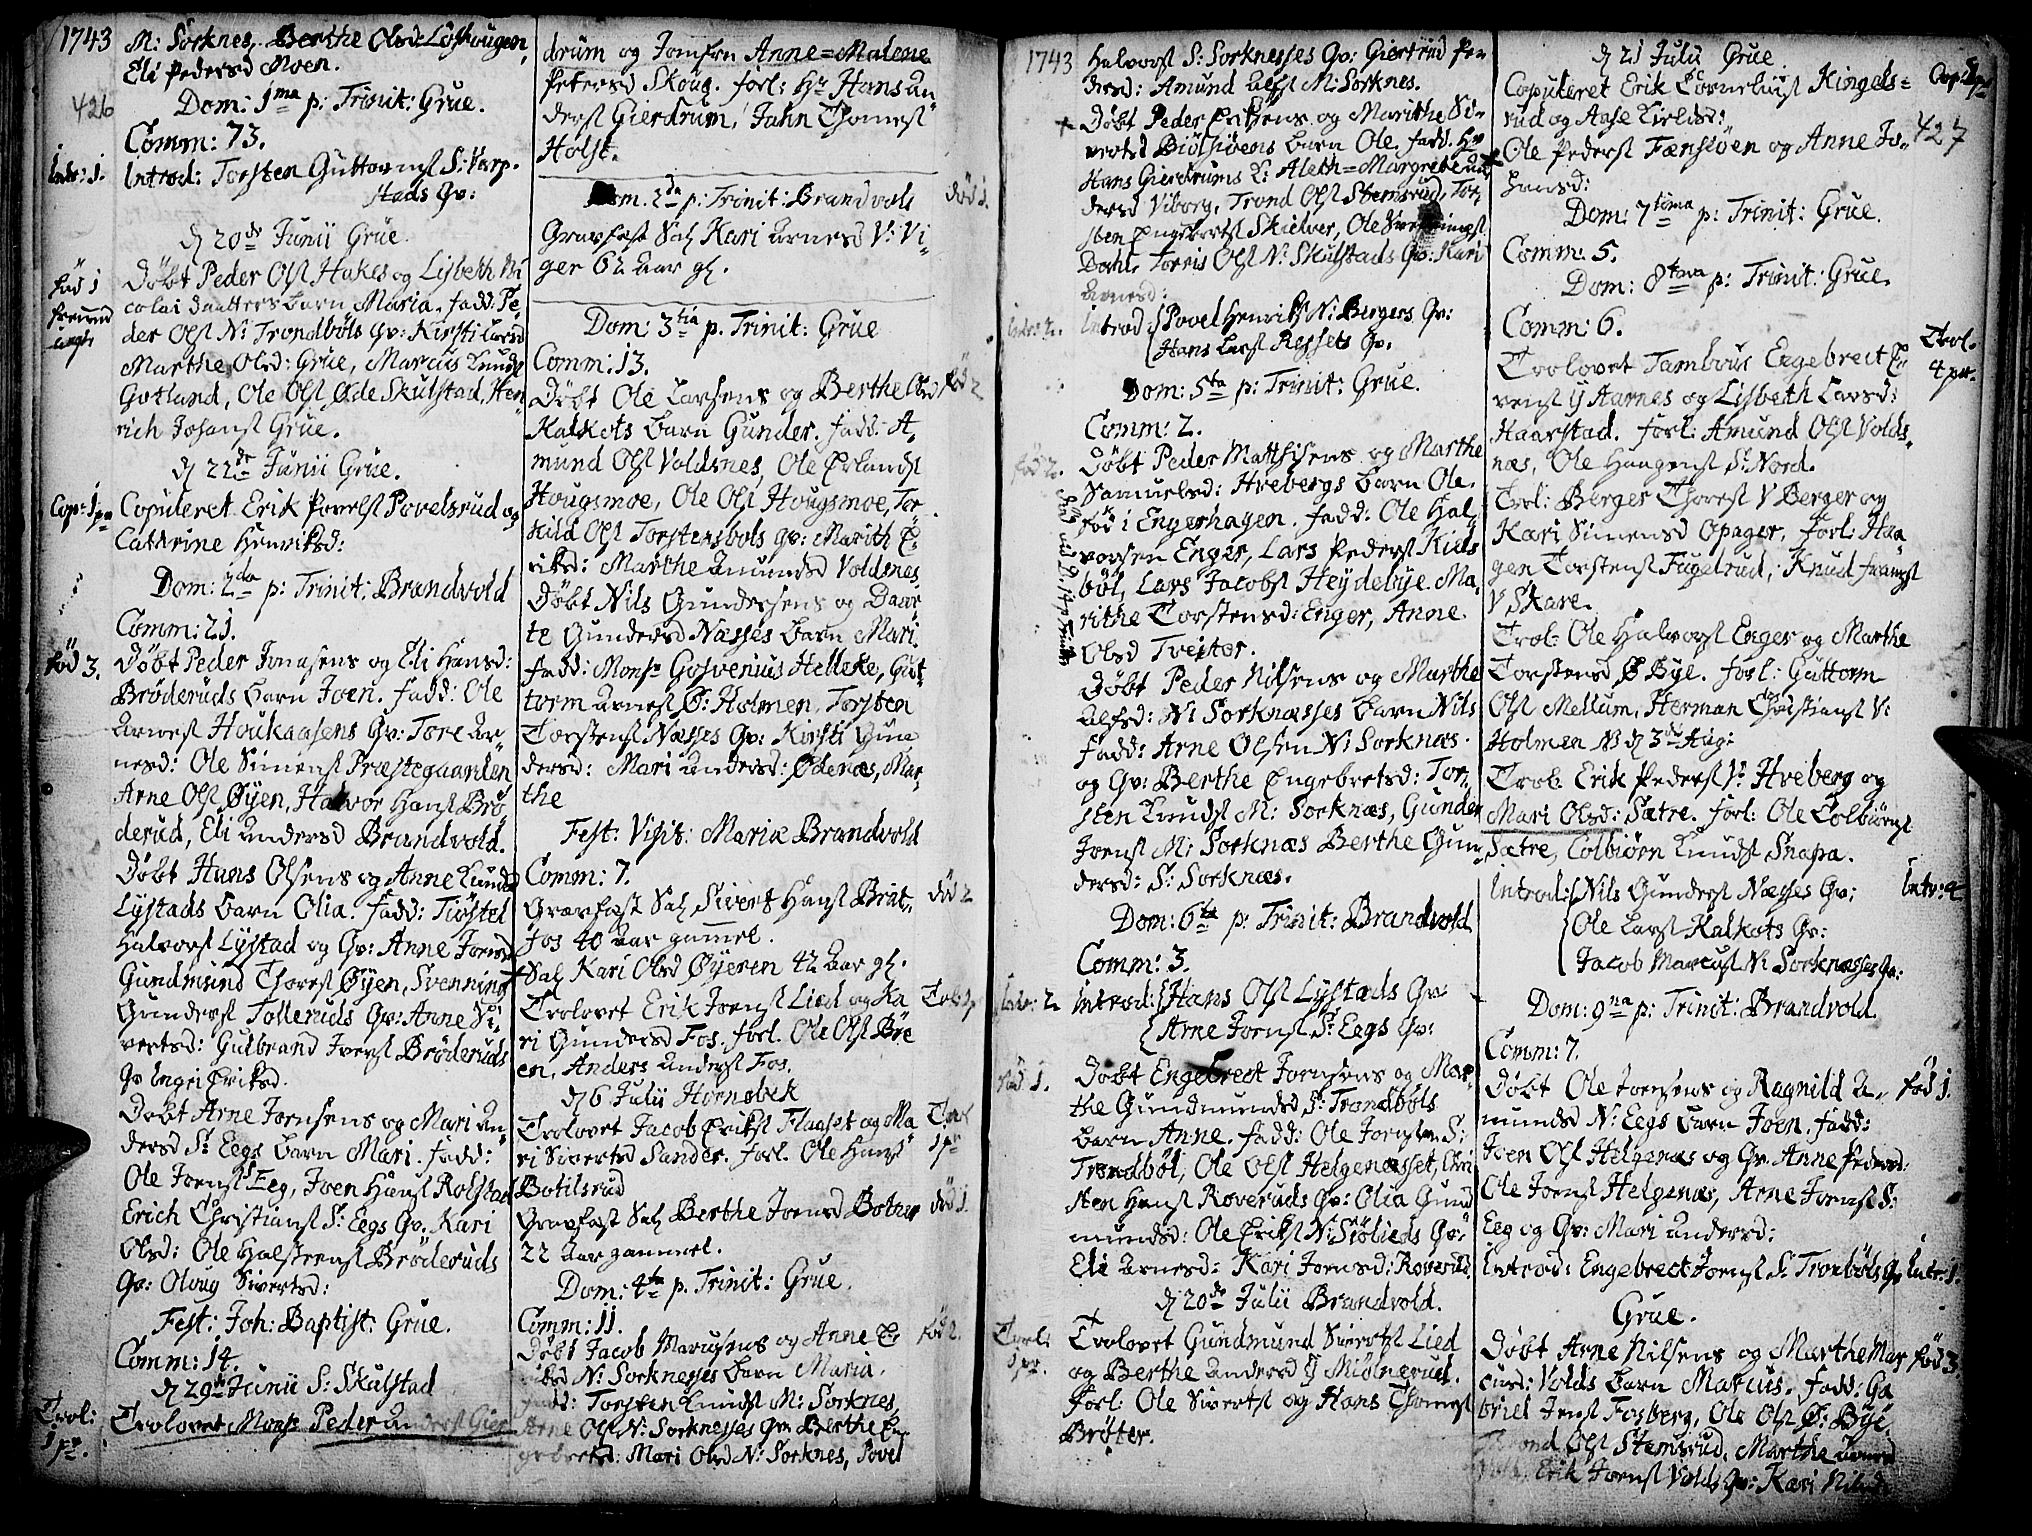 1743
426
M: Sorknes, Berthe Olsd: Løshougen,
Eli Pedersd Moen.
Dom: 1ma p: Trinit: Grue.
Comm: 73.
Intr: 1.
Introd: Torsten Guttormss S: Karp.
Hads Qv:
d 20de Junii Grue.
fød 1
Døbt Peder Olss Hukes og Lisbeth Ni
colai Daatters barn Maria. fadd: Pe
der Olss N: Trondbøls Qv: Kirsti Larsd
Marthe Olsd: Grue, Marcus Knuds
Gotland, Ole Olss Øde Skulstad, Hen
rich Johanss Grue.
d 22de Junii Grue.
Cop: 1pr
Copuleret Erik Povelss Povelsrud og
Cathrine Henriksd:
Dom: 2da p: Trinit: Brandvold
Comm: 21.
fød 3.
Døbt Peder Jonasens og Eli Hansd:
Brøderuds barn Joen. fadd: Ole
Arness Houkaasens Qv: Tore Ar
nesd: Ole Simenss Præstegaarden
Arne Olss Øyen, Halvor Hanss Brø
derud, Eli Andersd Brandvold.
Døbt Hans Olsens og Anne Knudsd
Lystads barn Olia. fadd: Kiøstel
Halvorss Lystad og Qv: Anne Joensd
Gundmund Thoress Øyen, Svenning
Gunderss Tolleruds Qv: Anne Si,
vertsd: Gulbrand Iverss Brøderuds
Qv Ingri Eriksd.
Døbt Arne Joensens og Mari An
dersd S: Eegs barn Mari. fadd:
Ole Joenss Eeg, Joen Hanss Rolstad
Erich Christianss S: Eegs Qv. Kari
Olsd: Ole Halstenss Brøderuds
Qv: Oloug Sivertsd:
Fest: Joh: Baptist: Grue.
Comm: 14.
d 29de Junii S: Skulstad
Trol: 1 pr.
Trolovet Monsr Peder Anderss Gier
drum og Jomfru Anne=Malene
Petersd Skoug. forl: Hr Hans An
derss Gierdrum, Jahn Thomess
Holst.
Dom. 2da p: Trinit: Brandvold
død 1.
Gravfæst Sal Kari Arnesd V: Vi
ger 62 Aar gl.
Dom: 3tia p. Trinit: Grue
Comm: 13.
fød 2
Døbt Ole Larsens og Berthe Olsd
Kalkets barn Gunder. fadd: A
mund Olss Voldsnes, Ole Erlandss
Hougsmoe, Ole Olss Hougsmoe, Tor
kild Olss Torstensbøls Qv: Marith E
riksd: Marthe Amundsd Voldsnes
Døbt Nils Gundersens og Daar
te Gundersd Næsses barn Mari.
fadd: Monsr Gosvenius Helleke, Gut
torm Arness Ø: Holmen, Torsten
Torstenss Næsses Qv: Kirsti Gun
dersd: Mari Andersd: Ødenæs, Mar
the
Fest: Visit: Mariæ Brandvold
Comm: 7.
død 2
Gravfæst Sal Sivert Hanss Brat,
fos 40 Aar gammel.
Sal Kari Olsd Øyeren 42 Aar gl.
Trolovet Erik Joenss Lied og Ka
ri Gundersd Fos. forl. Ole Olss Bøe
en, Anders Anderss Fos.
d 6 Julii Hornebek
Trol 1 pr
Trolovet Jacob Erikss Flaaset og Ma
ri Sivertsd Sander. forl. Ole Hanss
Botilsrud
død 1.
Gravfæst Sal Berthe Joensd Botner
22 Aar gammel.
Dom: 4ta p. Trinit: Grue.
Comm: 11.
fød 2.
Døbt Jacob Marcusens og Anne E
riksd N: Sorknesses barn Maria.
fadd: Torsten Knudss M: Sorknes,
Arne Olss N: Sorknesses Qv Berthe En
gebretsd: Mari Olsd N: Sorknes, Povel
1743
Halvorss S: Sorknesses Qv: Giertrud Pe
dersd: Amund Alfss M: Sorknes.
Døbt Peder Ersens og Marithe Si
vertsd Diølsiøens barn Ole. fadd. Hr
Hans Gierdrums K: Aleth=Margrethe An
dersd Viborg, Trond Olss Stemsrud, Tor
sten Engebretss Skielver, Ole Svenningss
Dahl, Torris Olss N: Skulstads Qv: Kari
Arnesd:
Intr: 2.
Introd Povel Henrikss N: Bergers Qv:
Hans Larss Ressets Qv.
Dom: 5ta p: Trinit: Grue.
Comm: 2.
fød 2.
Døbt Peder Matthisens og Marthe
Samuelsd: Hvebergs barn Ole.
fød i Engerhagen. fadd: Ole Hal
vorsen Enger, Lars Pederss Kiels
bøl, Lars Jacobss Heydebye. Ma
rithe Torstensd: Enger, Anne
Olsd Tveiter.
Døbt Peder Nilsens og Marthe
Alfsd: N: Sorknæsses barn Nils
fadd: Arne Olsen N: Sorknæs
og Qv: Berthe Engebretsd: Tor,
sten Knudss M: Sorknæs, Gunder
Joenss M: Sorknæs Berthe Gun
dersd: S: Sorknæs.
Dom: 6ta p: Trinit: Brandvold
Comm: 3.
Intr: 2
Introd: Hans Olss Lystads Qv:
Arne Joenss S: Eegs Qv:
fød 1.
Døbt Engebrect Joensens og Mar
the Gundmundsd S: Trondbøls
barn Anne. fadd: Ole Joensen S:
Trondbøl, Ole Olss Helgenæsset, Chri
sten Hanss Roveruds Qv: Olia Gund
mundsd: Ole Erikss N: Siølieds Qv:
Eli Arnesd: Kari Joensd: Roverud.
d 20de Julii Brandvold.
Trol: 1 pr.
Trolovet Gundmund Sivertss Lied
og Berthe Andersd Y Midnerud.
forl: Ole Sivertss og Hans Thomess
Brøter.
d 21 Julii Grue.
Cop:
427
Copuleret Erik Corneliuss Ringels=
rud og Aase Kieldsd:
Ole Pederss Fænstøen og Anne Jo,
hansd:
Dom: 7tima p: Trinit: Grue.
Comm: 5.
Dom: 8tava p: Trinit: Grue.
Comm: 6.
Trol. 4 pr.
Trolovet Tambour Engebrect E
rense Y Aarnes og Lisbeth Larsd:
Haarstad. forl: Amund Olss Volds,
næs, Ole Haagenss S: Nord.
Trol: Berger Thoress V Berger og
Kari Simensd Opager, forl: Haa
gen Torstenss Fugelrud, Knud franss
V Skare.
Trol: Ole Halvorss Enger og Marthe
Torstensd Ø Bye. forl: Guttorm
Olss Mellum, Herman Christianss V:
Holmen NB d 3de Aug:
Trol: Erik Pederss V: Hveberg og
Mari Olsd: Sætre. forl: Ole Colbiørnss
Sætre, Colbiørn Knudss Snapa.
Intr: 4
Introd: Nils Gunderss Næsses Qv:
Ole Larss Kalkets Qv:
Jacob Marcuss N: Sorknæsses Qv:
Dom: 9na p: Trinit: Brandvold.
Comm: 7.
fød 1.
Døbt Ole Joensens og Ragnild A,
mundsd N: Eegs barn Joen. fadd:
Joen Olss Helgenæs og Qv. Anne Pedersd:
Ole Joenss Helgenæs, Arne Joenss S:
Eeg og Qv: Mari Andersd:
Introd: Engebrect Joenss S: Trondbøls Qv Intr: 1.
Grue.
fød 3.
Døbt Arne Nilsens og Marthe Mar
cusd: Volds barn Marcus. fadd: Ga
briel Jenss Fosberg, Ole Olss Ø: Bye,
Trond Olss Stemsrud, Marthe Larsd
Vold, Erik Joenss Volds Qv: Kari Nilsd